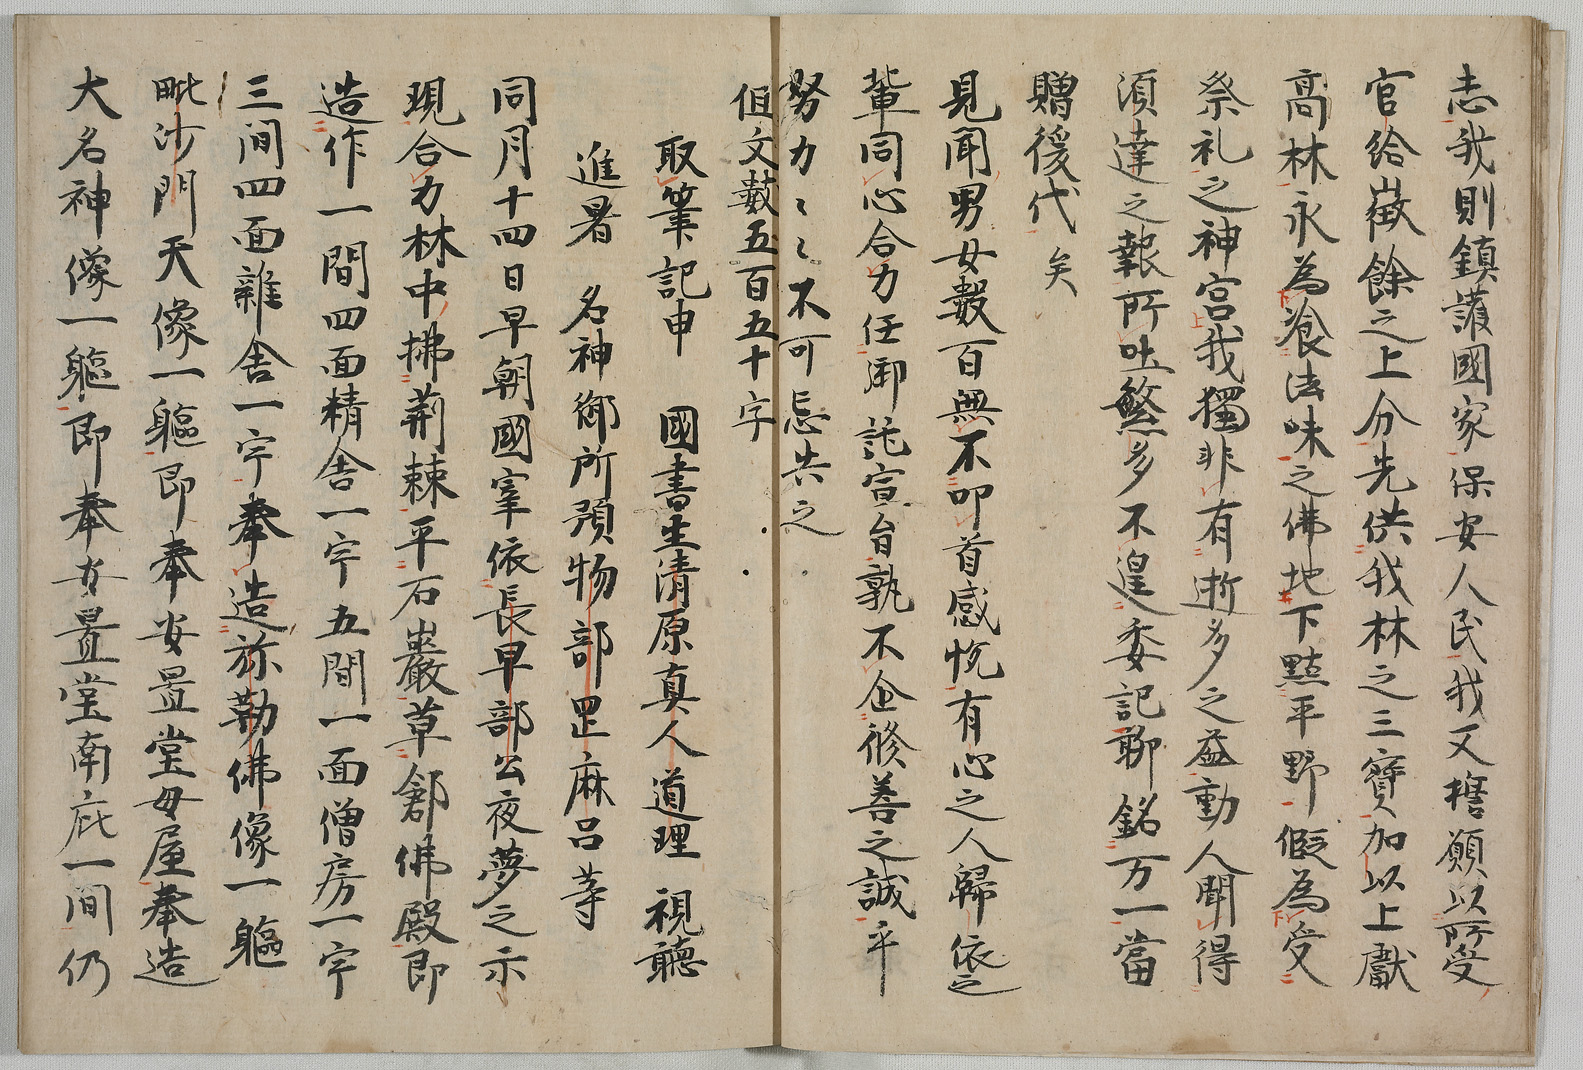 志我則鎮護國家保安人民我又擔願以所受
官給嚴餘之上分先供我林之三寳加以上獻
高林永為飡法味之佛地下點平野假為受
祭礼之神宮我獨非有逝多之益動人聞得
須達之報所吐繁多不遑委記聊銘万一當
贈後代矣
見聞男女數百無不叩首感悦有心之人歸依之
輩同心合力任御託宣自孰不企修善之誠乎
努力〻〻不可忘失之
但文數五百五十字
取筆記申 國書生清原真人道理 視聽
進署 名神御所預物部是麻呂等
同月十四日早朝國宰依長早部公夜夢之示
現合力林中拂荊棘平石巖草創佛殿即
造作一間四面精舎一宇五間一面僧房一宇
三間四面雜舎一宇奉造弥勒佛像一軀
毗沙門天像一軀即奉安置堂母屋奉造
大名神像一軀即奉安置堂南庇一間仍